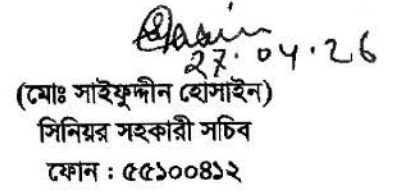 27.04.26
(মোঃ সাইফুদ্দীন হোসাইন)
সিনিয়র সহকারী সচিব
ফোন : ৫৫১০০৪১২